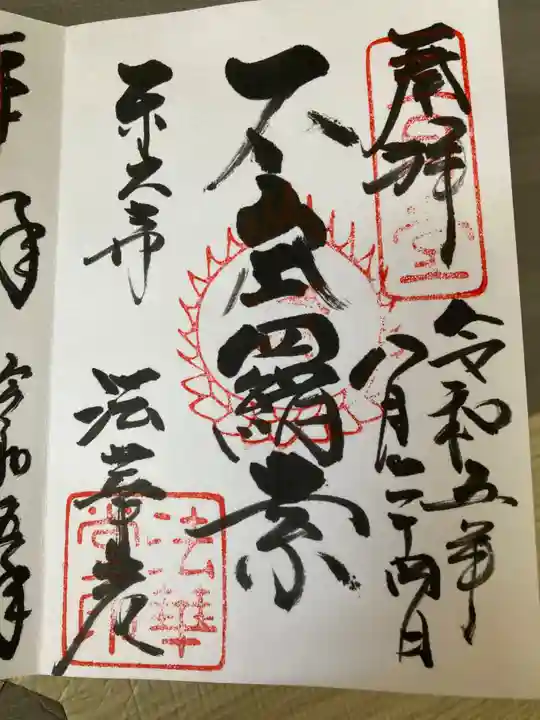 奉拝
令和五年
八月二十四日
不空羂索
東大寺
法華堂
法華
堂印
令和五年